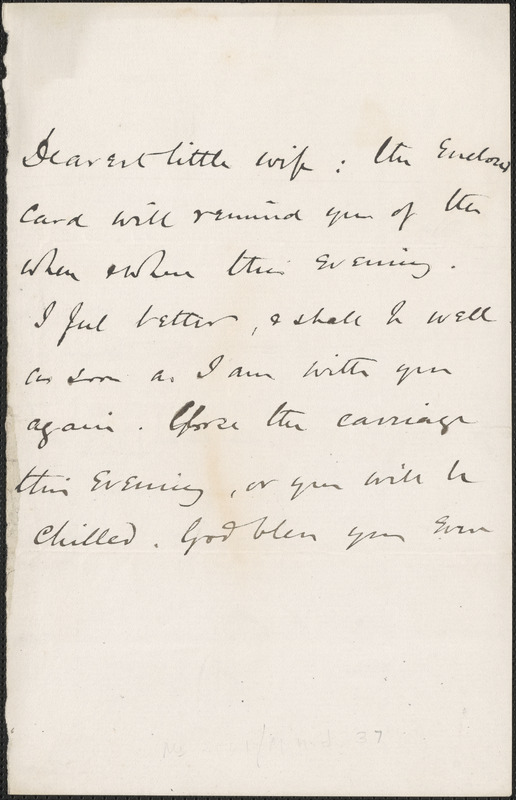 Dearest little wife: the enclosed
card will remind you of the
when & where this evening.
I feel better, & shall be well
as soon as I am with you
again. Close the carriage
this evening, or you will be
chilled. God bless you ever
37